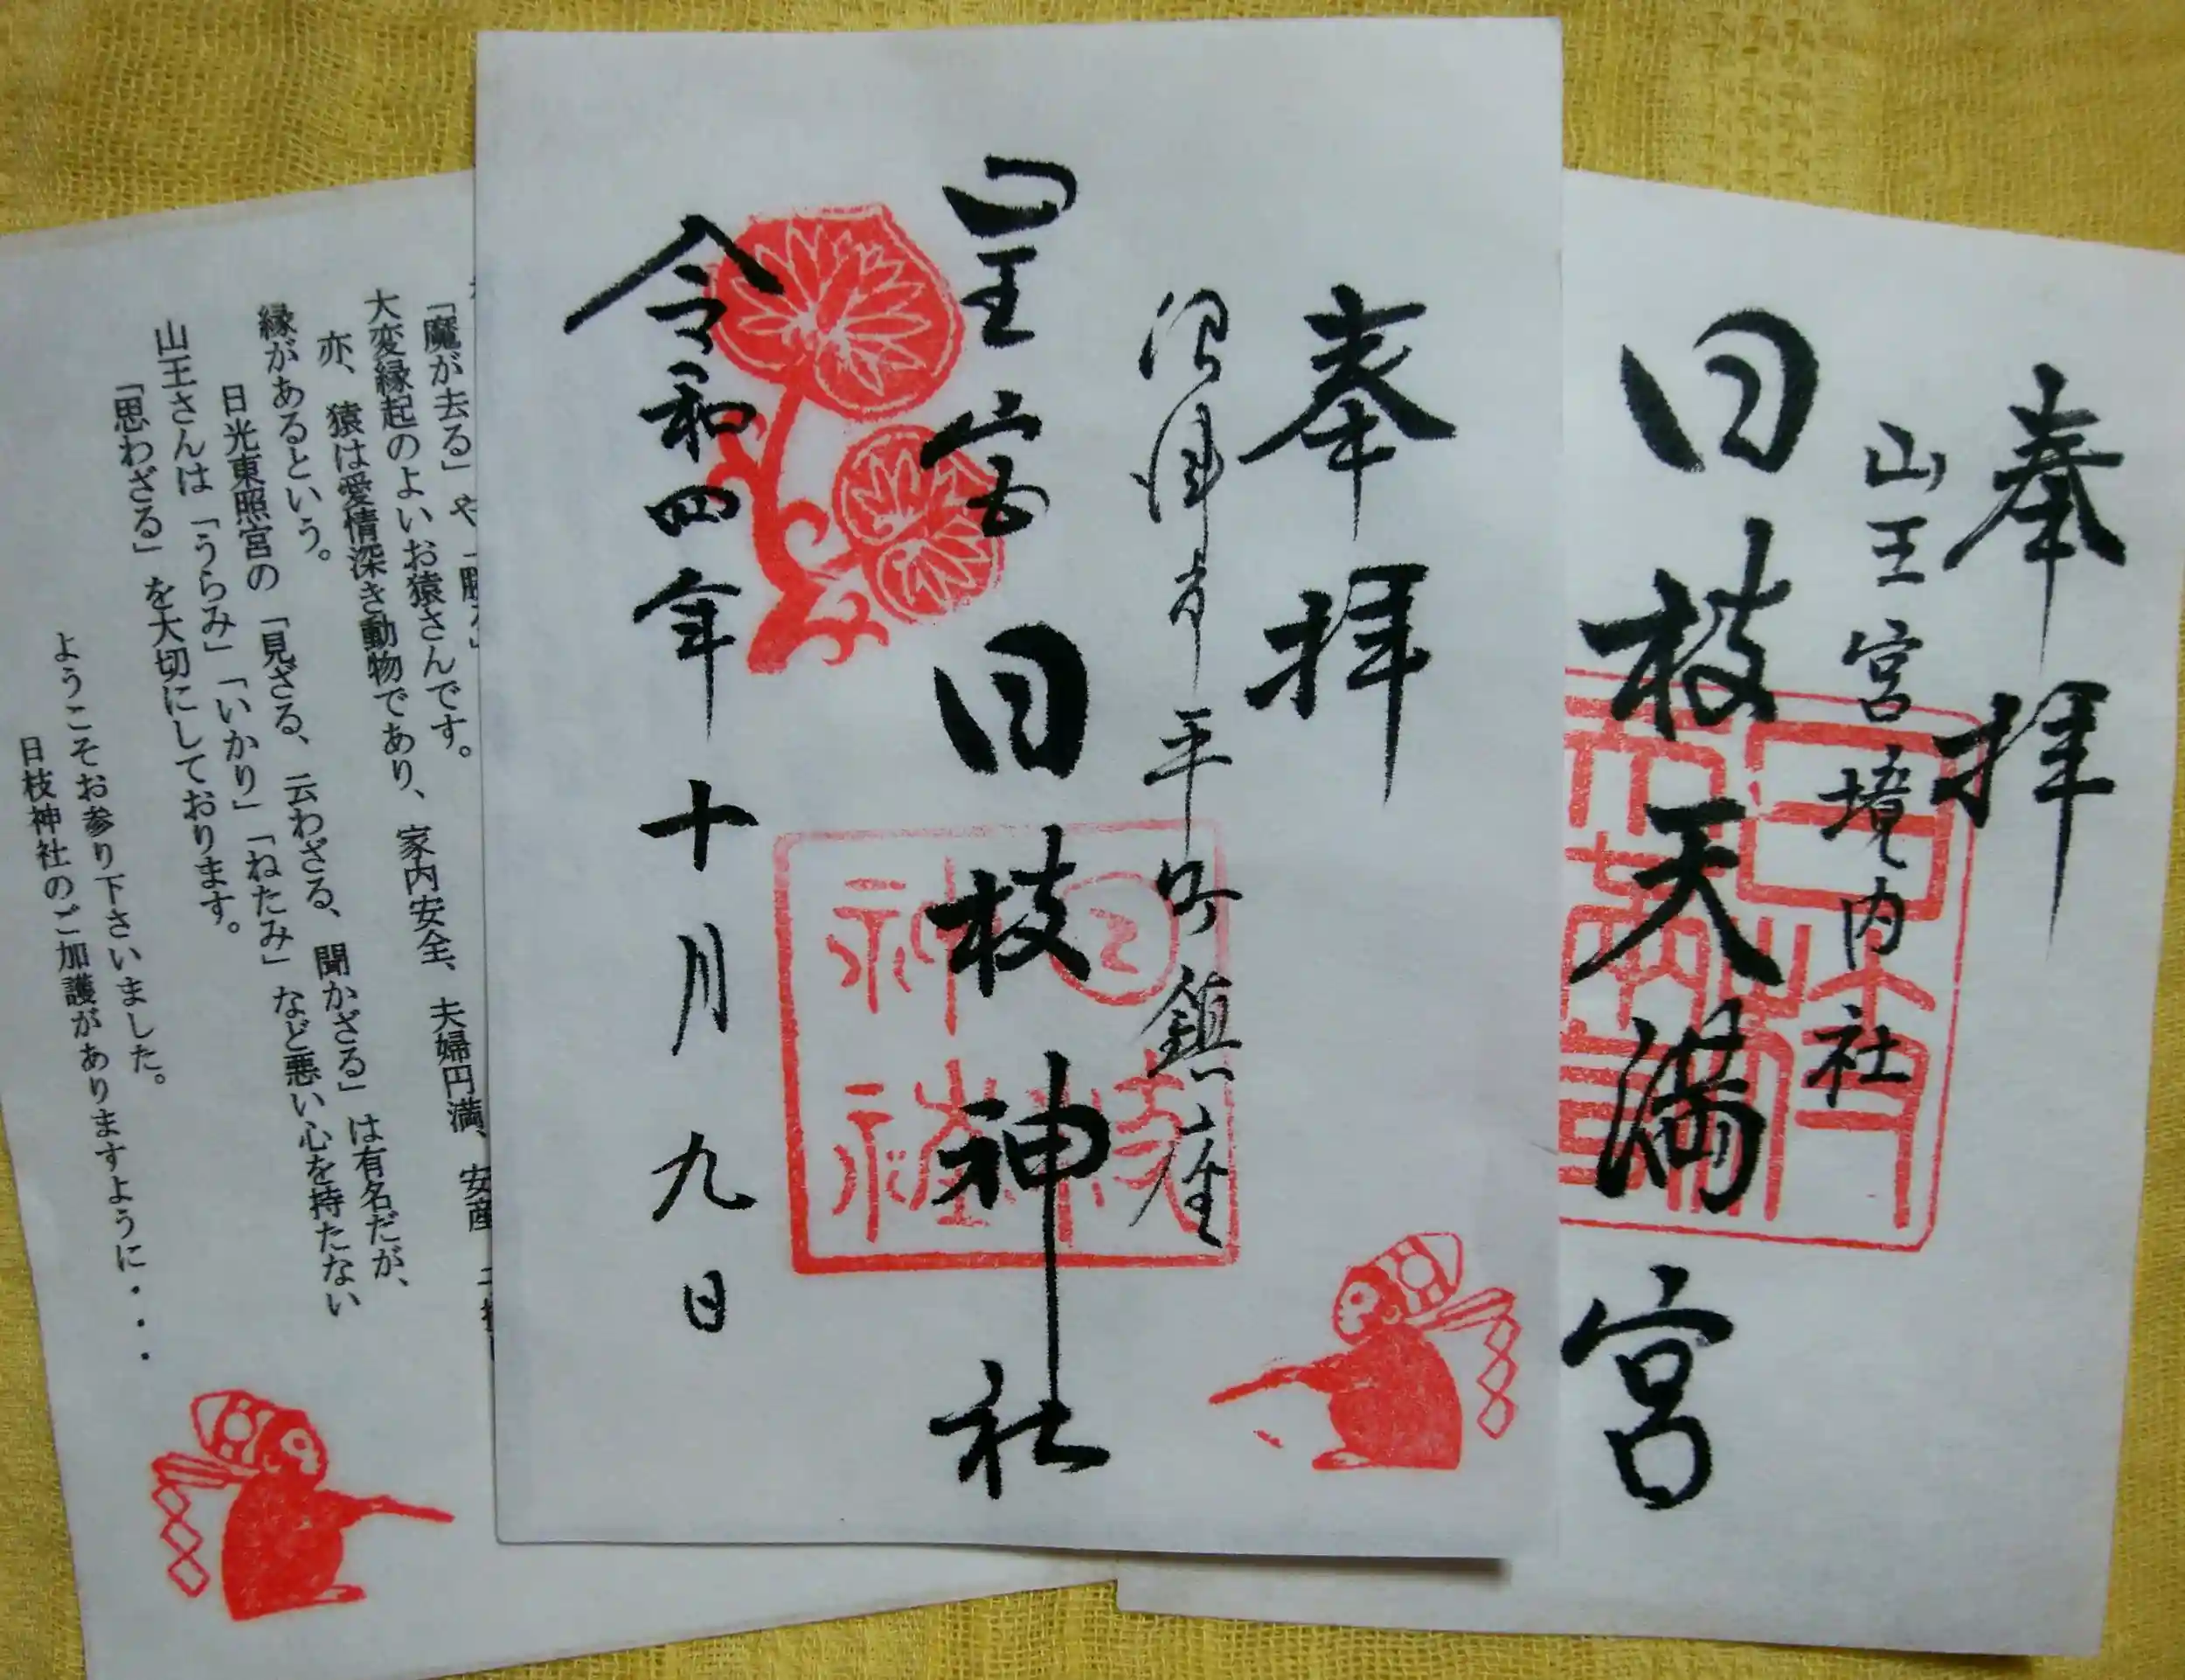 奉拝
山王宮境内社
日枝天満宮
奉拝
沼津市平町鎮座
山王宮
日枝神社
令和四年十月九日
日枝神社
「魔が去る」や
大変縁起のよいお猿さんです。
亦、猿は愛情深き動物であり、家内安全、夫婦円満、安産
縁があるという。
日光東照宮の「見ざる、云わざる、聞かざる」は有名だが、
山王さんは「うらみ」「いかり」「ねたみ」など悪い心を持たない
「思わざる」を大切にしております。
ようこそお参り下さいました。
日枝神社のご加護がありますように・・・